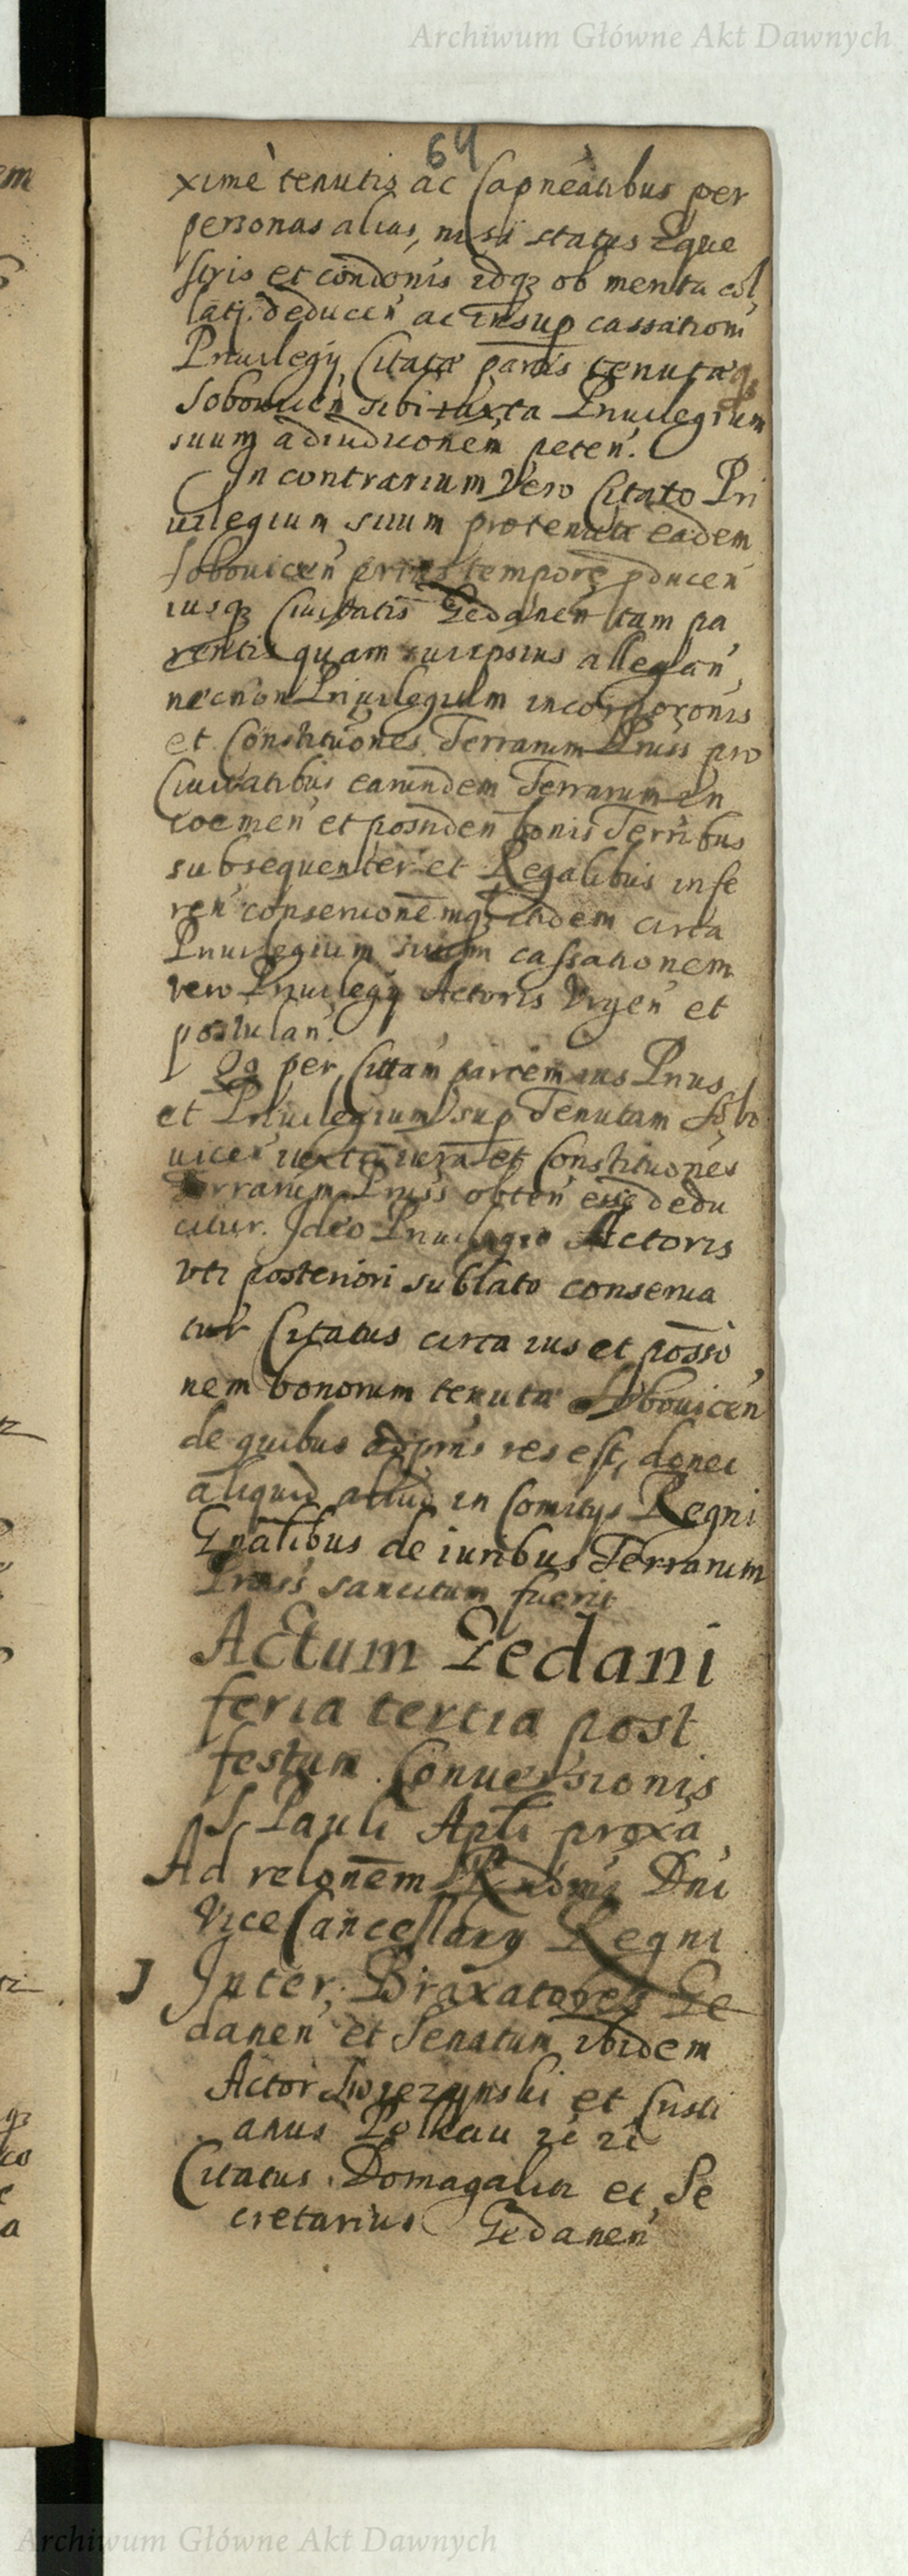 Archiwum Główne Akt Dawnych
64
ximè tenutis ac per
personas alias, nisi status Eque
stris et condonis idq; ob merita col
latj. deducen̄ ac insup cassationi
Priuilegij Citatæ partis tenutæq;
Sobouicen̄ sibi iuxta Priuilegium
suum adiudiconem peten̄.
In contrarium Vero Citato Pri
uilegium suum pro tenuta eadem
Sobouicen̄ prius tempore pducen̄
iusq; Ciuitatis Gedanen̄ tam pa
rentis quam suiipsius allegan̄,
necnon Priuilegium incorporonis
et Constituones Terrarum Pruss pro
Ciuitatibus earundem Terrarum in
coemen̄ et possiden bonis Terribus
subsequenter et Regalibus infe
ren̄ conseruonemq; ibidem circa
Priuilegium suum cassationem
vero Priuilegij Actoris Vrgen̄ et
postulan̄.
Qa per Cittam partem ius Prius
et Priuilegium sup Tenutam Sobo
uicen̄ iuxta iura et Constituones
Terrarum Pruss obten̄ esse dedu
citur. Ideo Priuilegio Actoris
vti posteriori sublato conserua
tur Citatus circa ius et possio
nem bonorum tenutæ Sobouicen̄
de quibus adpnūs res est, donec
aliquid aliud in Comitijs Regni
Gnālibus de iuribus Terrarum
Pruss sancitum fuerit
Actum Gedani
feria tertia post
festum Conuersionis
S. Pauli Apli proxa
Ad relonem Rndmi Dni
ViceCancellarij Regni
J Inter Braxatores Ge
danen̄ et Senatum ibidem
Actor Swiezynski et Cristi
anus Polkau
Citatus Domagalin et Se
cretarius Gedanen̄
Archiwum Główne Akt Dawnych